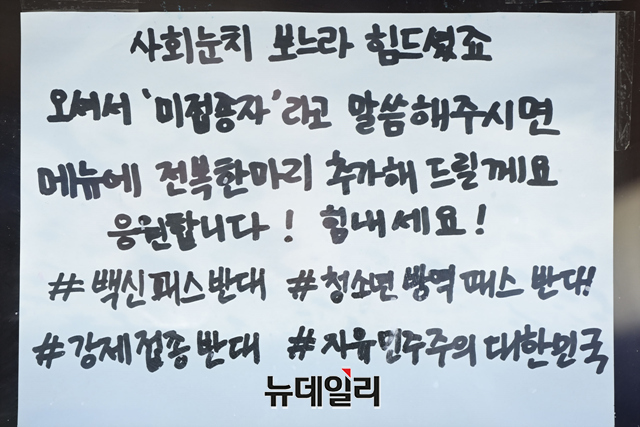 사회눈치 보느라 힘드셨죠
오셔서 '미접종자'라고 말씀해주시면
메뉴에 전복한마리 추가해 드릴께요
응원합니다! 힘내세요!
#백신패스반대 #청소년 방역패스 반대!
#강제접종반대 #자유민주주의 대한민국
뉴데일리